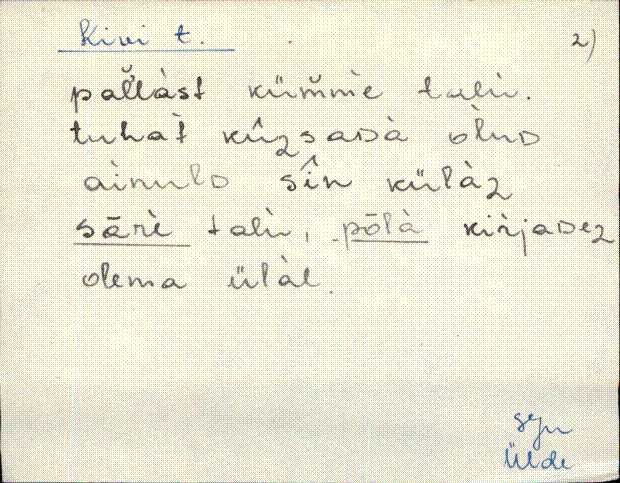 Kivi t. 2)
pal̆làst küm̆mè talù.
tuhàt kûzsaᴅà òluᴅ
àinulᴅ sîn külàz
sārè talù, pōlà kirjaᴅez
olema ülàl.
Ülde